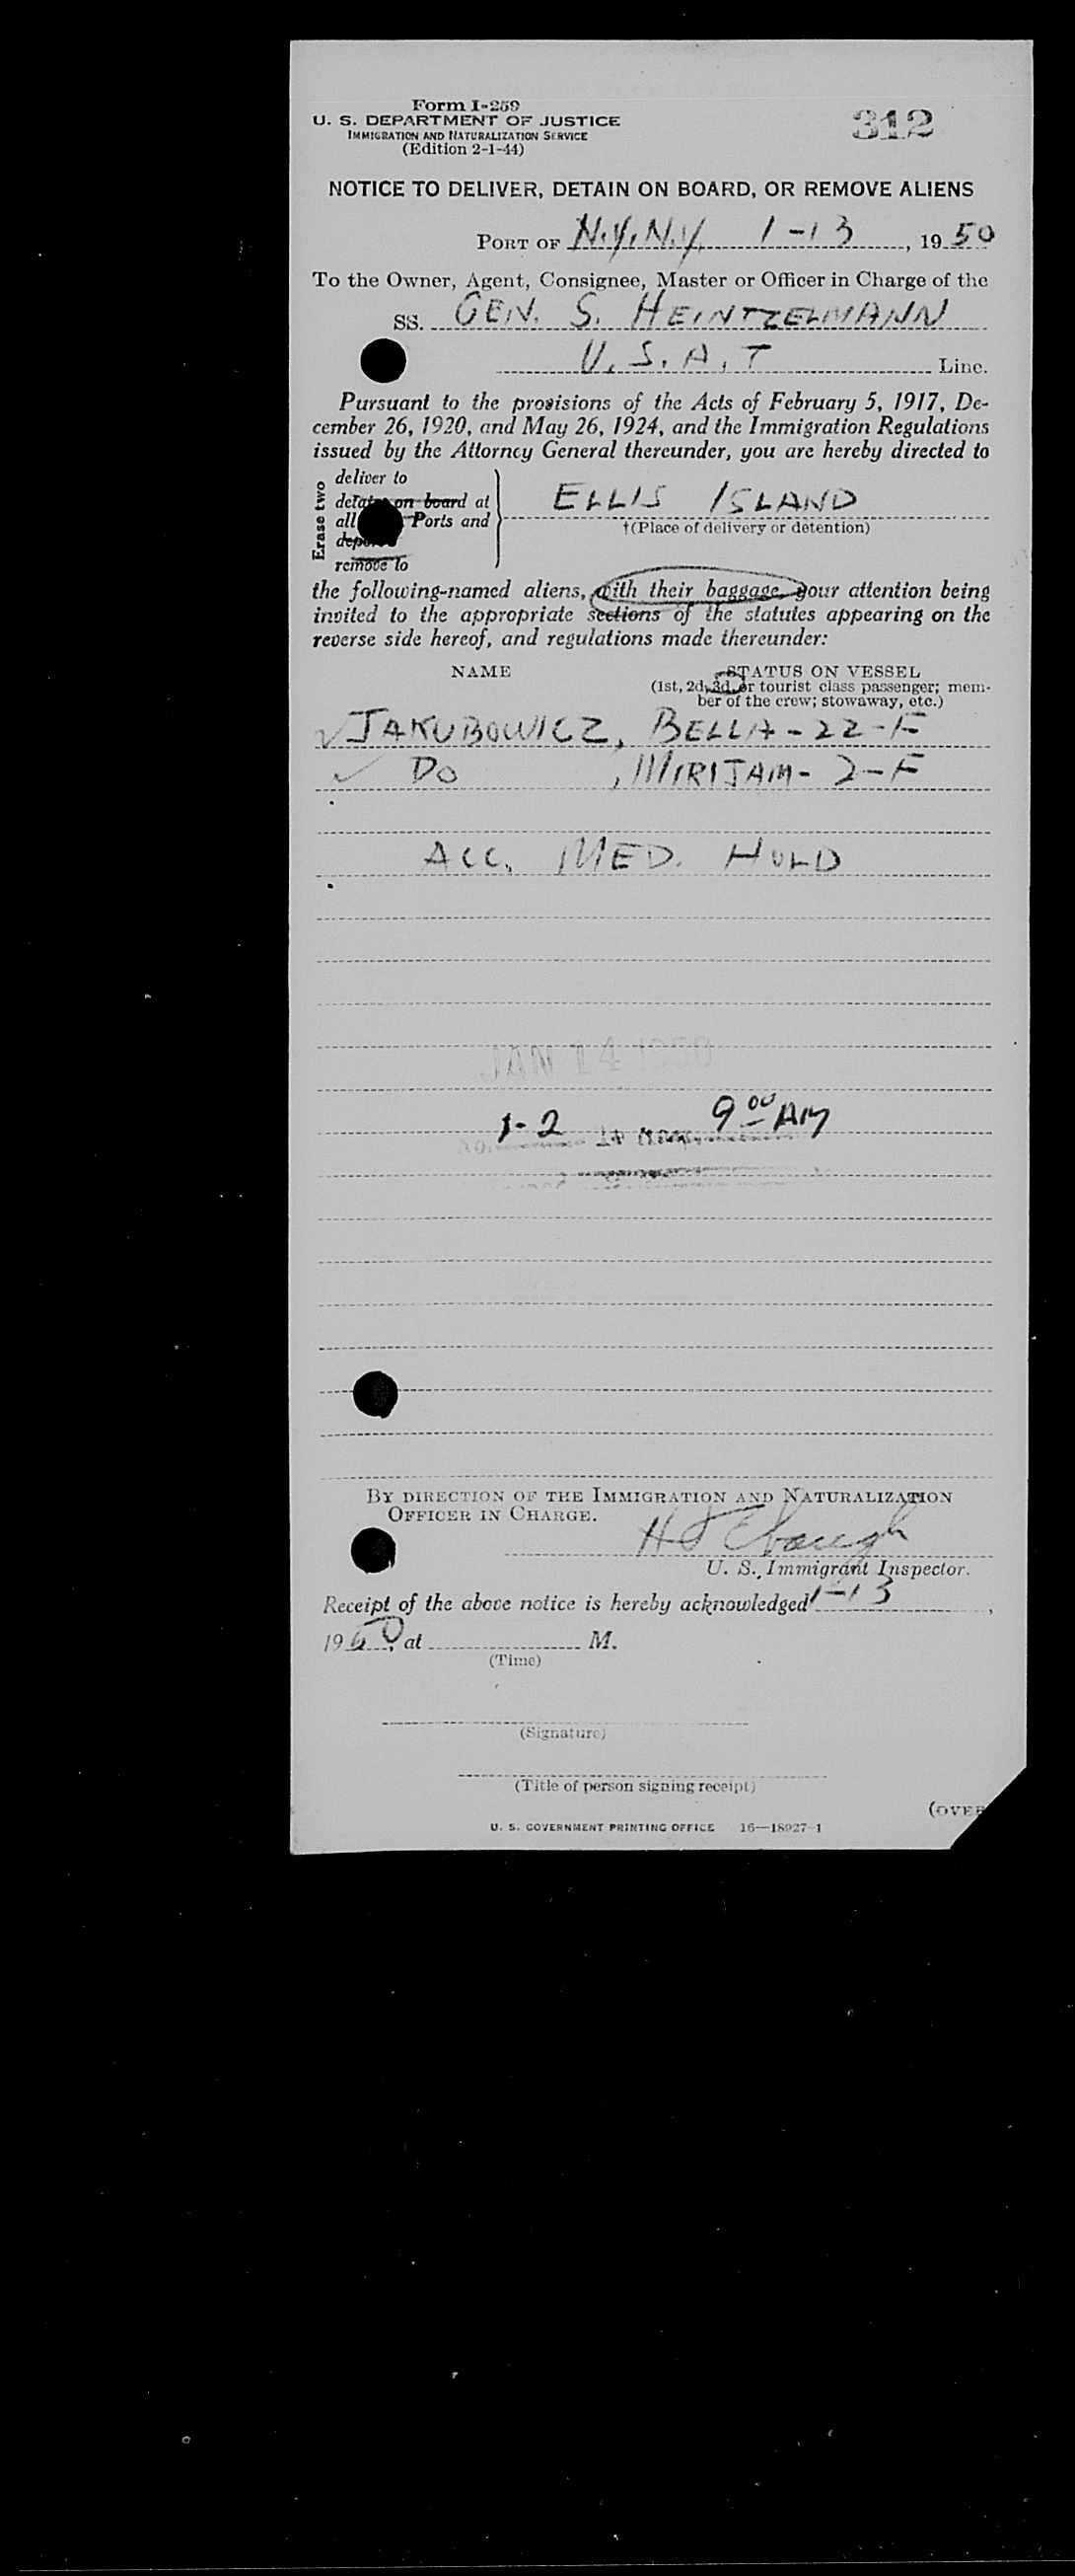 Form I-259
U. S. DEPARTMENT OF JUSTICE
IMMIGRATION AND NATURALIZATION SERVICE
(Edition 2-1-44)
312
NOTICE TO DELIVER, DETAIN ON BOARD, OR REMOVE ALIENS
PORT OF N.Y. N.Y. 1-13, 1950
To the Owner, Agent, Consignee, Master or Officer in Charge of the
SS. GEN. S. HEINTZELMANN
U.S.A.T Line.
Pursuant to the provisions of the Acts of February 5, 1917, De-
cember 26, 1920, and May 26, 1924, and the Immigration Regulations
issued by the Attorney General thereunder, you are hereby directed to
Erase two
deliver to
detain on board at
all Ports and
remove to
ELLIS ISLAND
†(Place of delivery or detention)
the following-named aliens, with their baggage, your attention being
invited to the appropriate sections of the statutes appearing on the
reverse side hereof, and regulations made thereunder:
NAME
STATUS ON VESSEL
(1st, 2d, 3d, or tourist class passenger; mem-
ber of the crew; stowaway, etc.)
✓ JAKUBOWICZ, BELLA - 22 - F
✓ DO , MIRIJAM - 2 - F
ACC. MED. HOLD
JAN 14 1950
1-2 9 00 AM
BY DIRECTION OF THE IMMIGRATION AND NATURALIZATION
OFFICER IN CHARGE.
U. S. Immigrant Inspector.
Receipt of the above notice is hereby acknowledged 1-13,
1950, at M.
(Time)
(Signature)
(Title of person signing receipt)
(OVER
U. S. GOVERNMENT PRINTING OFFICE 16—18927-1